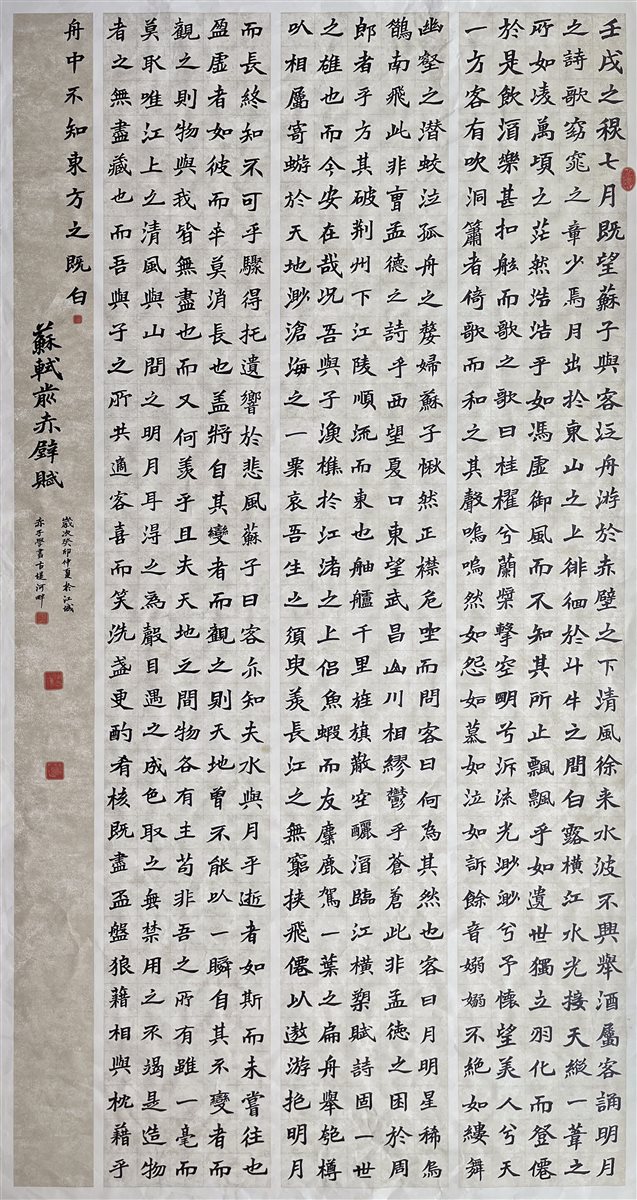 壬戌之秋七月既望蘇子與客泛舟游於赤壁之下清風徐来水波不興舉酒屬客誦明月
之詩歌窈窕之章少焉月出於東山之上徘徊於斗牛之間白露橫江水光接天縱一葦之
所如凌萬頃之茫然浩浩乎如馮虛御風而不知其所止飄飄乎如遺世獨立羽化而登僊
於是飲酒樂甚扣舷而歌之歌曰桂櫂兮蘭槳擊空明兮泝流光渺渺兮予懷望美人兮天
一方客有吹洞簫者倚歌而和之其聲嗚嗚然如怨如慕如泣如訴餘音嫋嫋不絕如縷舞
幽壑之潛蛟泣孤舟之嫠婦蘇子愀然正襟危坐而問客曰何為其然也客曰月明星稀烏
鵲南飛此非曹孟德之詩乎西望夏口東望武昌山川相繆鬱乎蒼蒼此非孟德之困於周
郎者乎方其破荆州下江陵順流而東也舳艫千里旌旗蔽空釃酒臨江橫槊賦詩固一世
之雄也而今安在哉況吾與子漁樵於江渚之上侶魚蝦而友麋鹿駕一葉之扁舟舉匏樽
以相屬寄蝣於天地渺滄海之一粟哀吾生之須臾羨長江之無窮挾飛僊以遨游抱明月
而長終知不可乎驟得托遺響於悲風蘇子曰客亦知夫水與月乎逝者如斯而未嘗往也
盈虛者如彼而卒莫消長也蓋將自其變者而觀之則天地曾不能以一瞬自其不變者而
觀之則物與我皆無盡也而又何羨乎且夫天地之間物各有主苟非吾之所有雖一毫而
莫取唯江上之清風與山間之明月耳得之為聲目遇之成色取之無禁用之不竭是造物
者之無盡藏也而吾與子之所共適客喜而笑洗盞更酌肴核既盡盃盤狼藉相與枕藉乎
舟中不知東方之既白
蘇軾前赤壁賦
歲次癸卯仲夏於江城
赤子學書古堤河畔